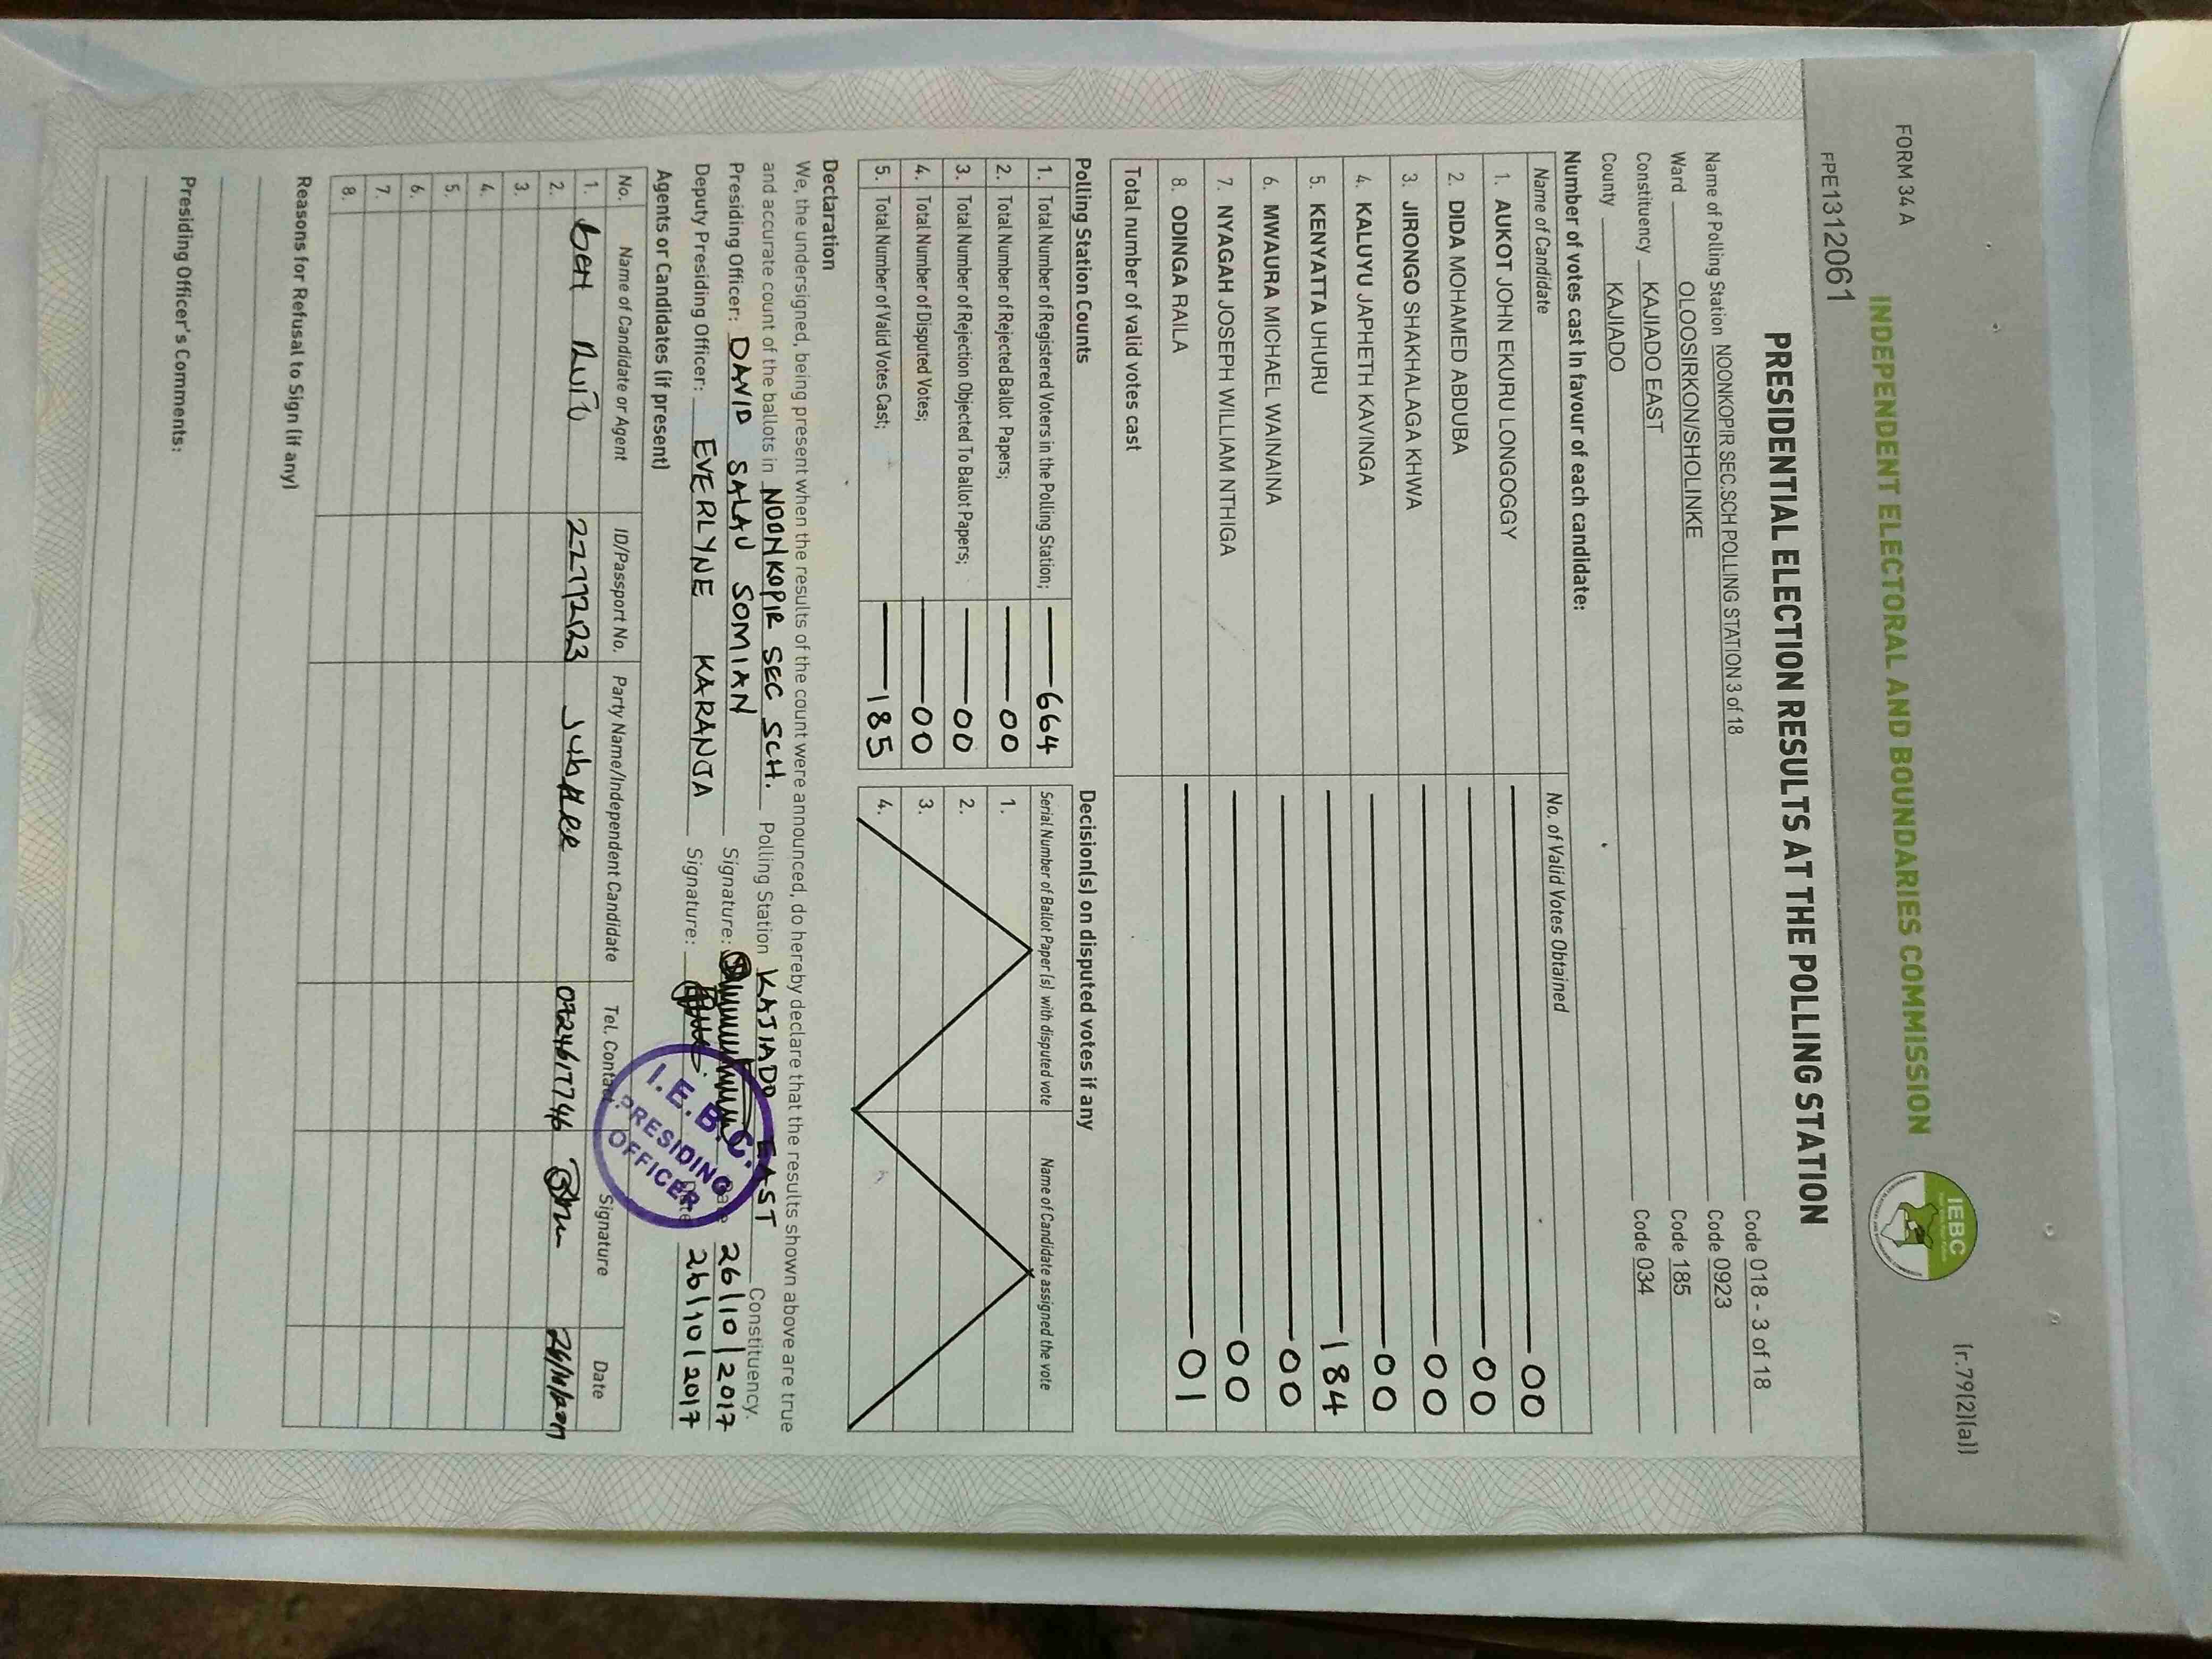 FORM 34 A
(r.79(2)(a))
INDEPENDENT ELECTORAL AND BOUNDARIES COMMISSION
IEBC
FPE1312061
PRESIDENTIAL ELECTION RESULTS AT THE POLLING STATION
Name of Polling Station NOONKOPIR SEC.SCH POLLING STATION 3 of 18 Code 018 - 3 of 18
Ward OLOOSIRKON/SHOLINKE Code 0923
Constituency KAJIADO EAST Code 185
County KAJIADO Code 034
Number of votes cast in favour of each candidate:
Name of Candidate No. of Valid Votes Obtained
1. AUKOT JOHN EKURU LONGOGGY 00
2. DIDA MOHAMED ABDUBA 00
3. JIRONGO SHAKHALAGA KHWA 00
4. KALUYU JAPHETH KAVINGA 00
5. KENYATTA UHURU 184
6. MWAURA MICHAEL WAINAINA 00
7. NYAGAH JOSEPH WILLIAM NTHIGA 00
8. ODINGA RAILA 01
Total number of valid votes cast
Polling Station Counts
1. Total Number of Registered Voters in the Polling Station; 664
2. Total Number of Rejected Ballot Papers; 00
3. Total Number of Rejection Objected To Ballot Papers; 00
4. Total Number of Disputed Votes; 00
5. Total Number of Valid Votes Cast; 185
Decision(s) on disputed votes if any
Serial Number of Ballot Paper (s) with disputed vote Name of Candidate assigned the vote
1.
2.
3.
4.
Declaration
We, the undersigned, being present when the results of the count were announced, do hereby declare that the results shown above are true
and accurate count of the ballots in NOONKOPIR SEC SCH. Polling Station KAJIADO EAST Constituency.
Presiding Officer: DAVID SALAU SOMIAN Signature: Date 26/10/2017
Deputy Presiding Officer: EVERLYNE KARANJA Signature: Date 26/10/2017
I.E.B.C.
PRESIDING
OFFICER
Agents or Candidates (if present)
No. Name of Candidate or Agent ID/Passport No. Party Name/Independent Candidate Tel. Contact Signature Date
1. 
2.
3.
4.
5.
6.
7.
8.
Reasons for Refusal to Sign (if any)
Presiding Officer's Comments: